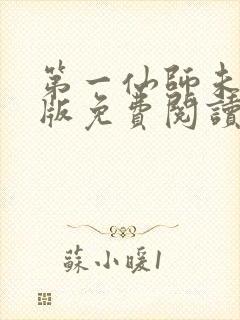 第一仙師未
版免費閱讀
蘇小暖1